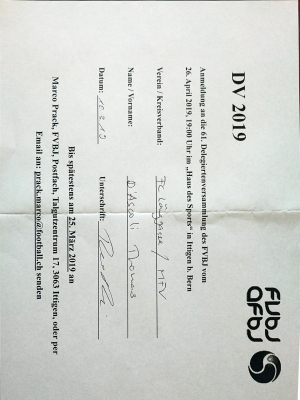 FVBJ
AFBJ
DV 2019
Anmeldung an die 61. Delegiertenversammlung des FVBJ vom
26. April 2019, 19:00 Uhr im „Haus des Sports“ in Ittigen b. Bern
Verein / Kreisverband: FC Länggasse / MFV
Name / Vorname: D'Ascoli Thomas
Datum: 10.3.19 Unterschrift:
Bis spätestens am 25. März 2019 an
Marco Prack, FVBJ, Postfach, Talgutzentrum 17, 3063 Ittigen, oder per
Email an: prack.marco@football.ch senden